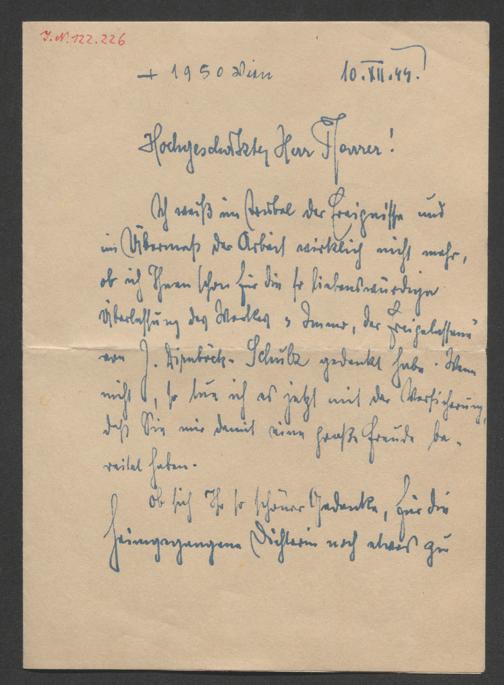 J.N. 122.226
+ 1950 Wien 10.XII.44.
Hochgeschätzter Herr Pfarrer!
Ich weiß im Trubel der Ereignisse und
im Übermaß der Arbeit wirklich nicht mehr,
ob ich Ihnen schon für die so liebenswürdige
Überlassung des Werkes „ der Freigelassene"
von J. Schulz gedankt habe. Wenn
nicht, so tue ich es jetzt mit der Versicherung,
daß Sie mir damit eine große Freude be-
reitet haben.
Ob sich Ihr so schöner Gedanke, für die
heimgegangene Dichterin noch etwas zu